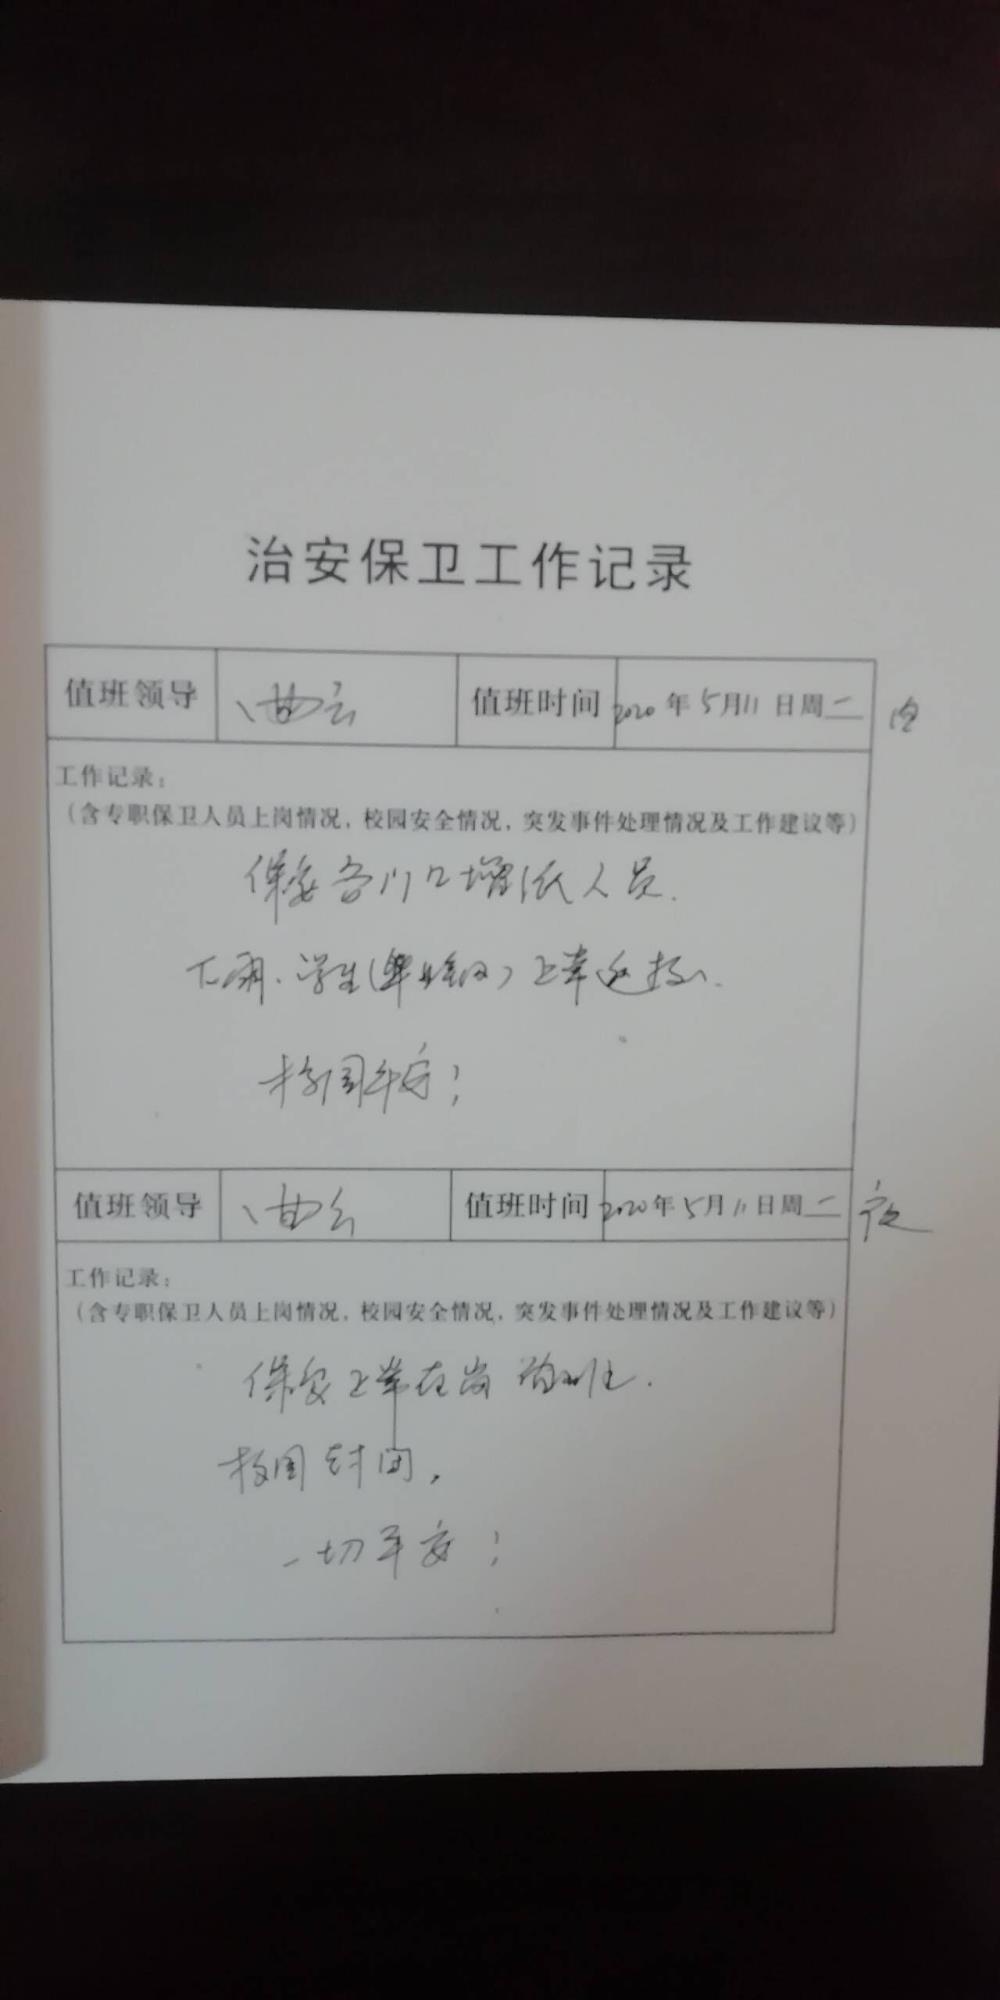 治安保卫工作记录
值班领导 曲云 值班时间 2020年5月11日周二
工作记录：
（含专职保卫人员上岗情况，校园安全情况，突发事件处理情况及工作建议等）
保安各门口增派人员.
下雨.学生(毕业班)正常返校.
校园平安;
值班领导 曲云 值班时间 2020年5月11日周二 夜
工作记录：
（含专职保卫人员上岗情况，校园安全情况，突发事件处理情况及工作建议等）
保安正常在岗值班.
校园封闭,
一切平安;